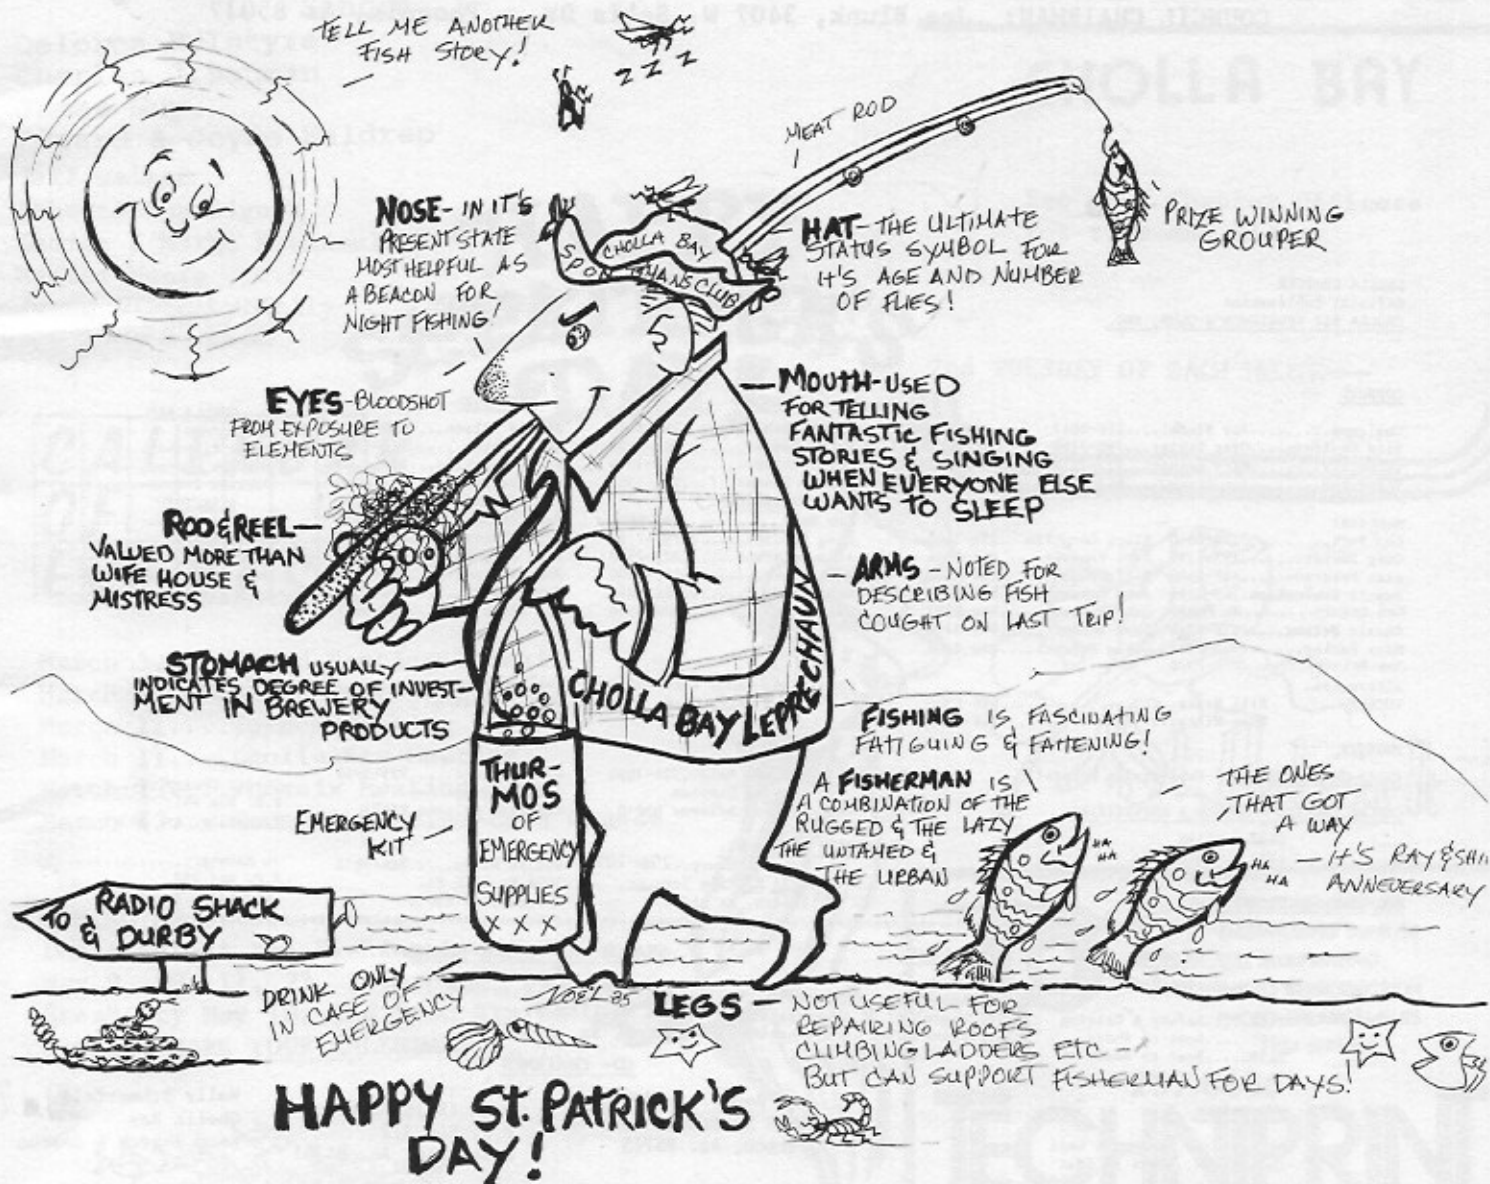 TELL ME ANOTHER
FISH STORY!
Z Z Z
MEAT ROD
NOSE - IN IT'S
PRESENT STATE
MOST HELPFUL AS
A BEACON FOR
NIGHT FISHING!
CHOLLA BAY
SPO TMANS CLUB
HAT - THE ULTIMATE
STATUS SYMBOL FOR
IT'S AGE AND NUMBER
OF FLIES!
PRIZE WINNING
GROUPER
EYES - BLOODSHOT
FROM EXPOSURE TO
ELEMENTS
MOUTH - USED
FOR TELLING
FANTASTIC FISHING
STORIES & SINGING
WHEN EVERYONE ELSE
WANTS TO SLEEP
ROD & REEL -
VALUED MORE THAN
WIFE HOUSE &
MISTRESS
ARMS - NOTED FOR
DESCRIBING FISH
COUGHT ON LAST TRIP!
STOMACH USUALLY
INDICATES DEGREE OF INVEST-
MENT IN BREWERY
PRODUCTS
CHOLLA BAY LEPRECHAUN
FISHING IS FASCINATING
FATIGUING & FATTENING!
A FISHERMAN IS
A COMBINATION OF THE
RUGGED & THE LAZY
THE UNTAMED &
THE URBAN
THE ONES
THAT GOT
A WAY
HA
HA
HA
HA
- IT'S RAY &
ANNEVERSARY
EMERGENCY
KIT
THUR-
MOS
OF
EMERGENCY
SUPPLIES
X X X
TO RADIO SHACK
& DURBY
DRINK ONLY
IN CASE OF
EMERGENCY
NOEL 85
LEGS - NOT USEFUL FOR
REPAIRING ROOFS
CLIMBING LADDERS ETC -
BUT CAN SUPPORT FISHERMAN FOR DAYS!
HAPPY St. PATRICK'S
DAY!